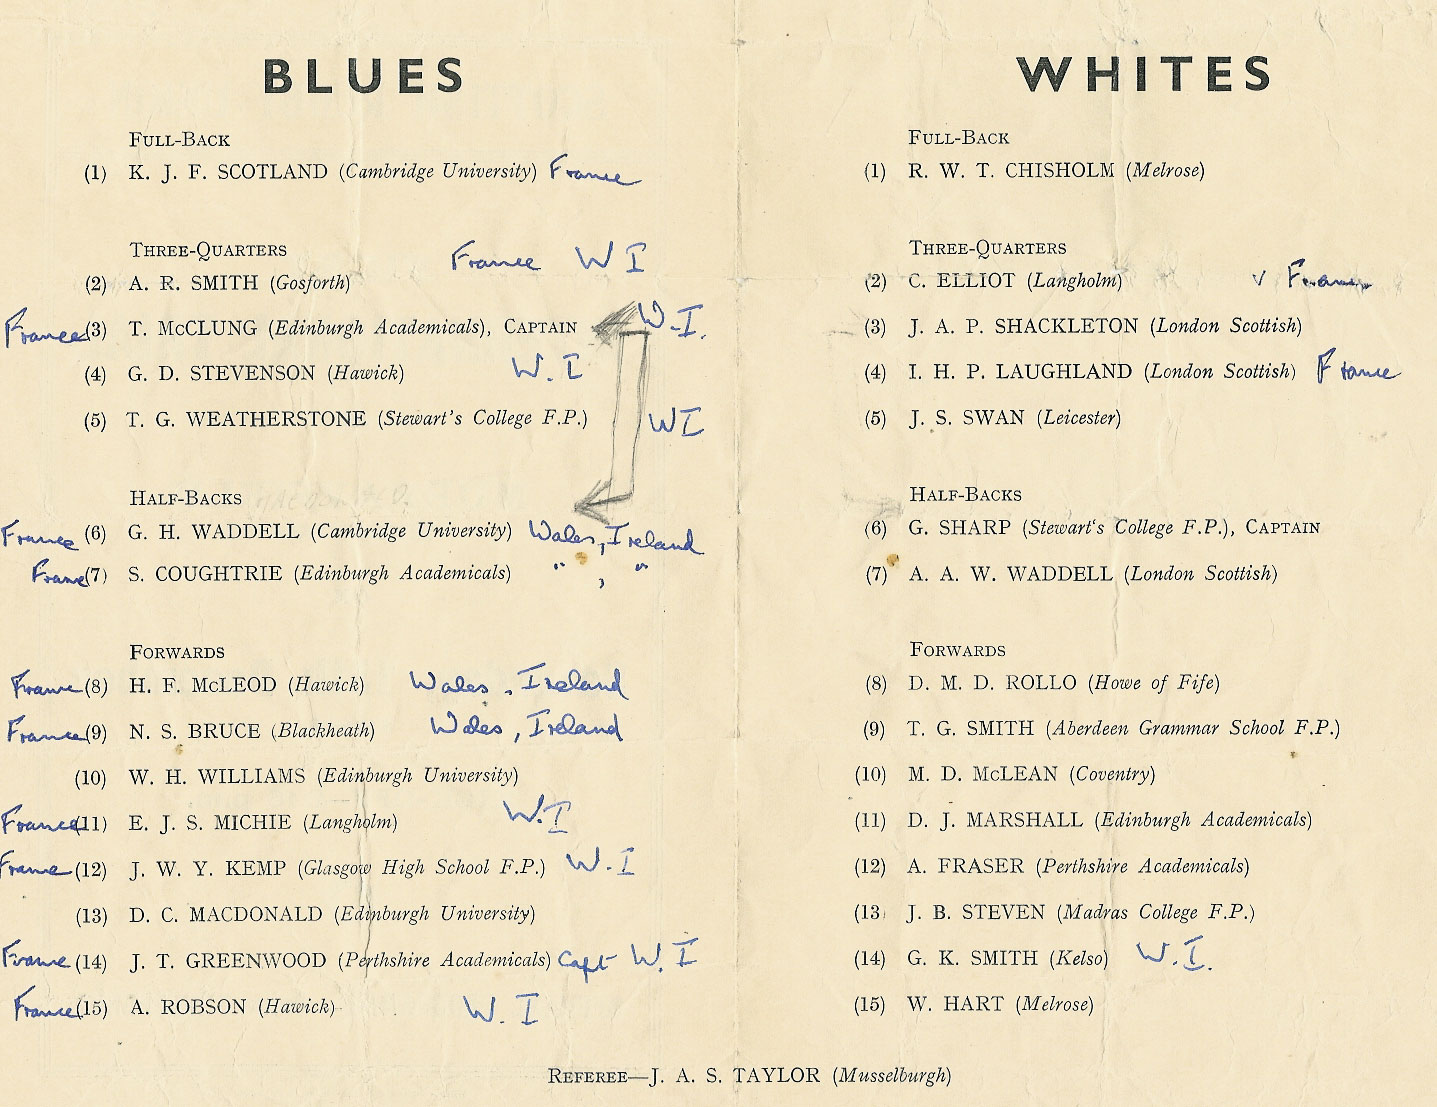 BLUES
FULL-BACK
(1) K. J. F. SCOTLAND (Cambridge University) France
THREE-QUARTERS
France W I
(2) A. R. SMITH (Gosforth)
France (3) T. McCLUNG (Edinburgh Academicals), CAPTAIN W.I.
(4) G. D. STEVENSON (Hawick) W.I
(5) T. G. WEATHERSTONE (Stewart's College F.P.) WI
HALF-BACKS
France (6) G. H. WADDELL (Cambridge University) Wales, Ireland
France (7) S. COUGHTRIE (Edinburgh Academicals) " , "
FORWARDS
France (8) H. F. McLEOD (Hawick) Wales, Ireland
France (9) N. S. BRUCE (Blackheath) Wales, Ireland
(10) W. H. WILLIAMS (Edinburgh University)
France (11) E. J. S. MICHIE (Langholm) W.I
France (12) J. W. Y. KEMP (Glasgow High School F.P.) W.I
(13) D. C. MACDONALD (Edinburgh University)
France (14) J. T. GREENWOOD (Perthshire Academicals) Capt W.I
France (15) A. ROBSON (Hawick) W.I
WHITES
FULL-BACK
(1) R. W. T. CHISHOLM (Melrose)
THREE-QUARTERS
(2) C. ELLIOT (Langholm) v France
(3) J. A. P. SHACKLETON (London Scottish)
(4) I. H. P. LAUGHLAND (London Scottish) France
(5) J. S. SWAN (Leicester)
HALF-BACKS
(6) G. SHARP (Stewart's College F.P.), CAPTAIN
(7) A. A. W. WADDELL (London Scottish)
FORWARDS
(8) D. M. D. ROLLO (Howe of Fife)
(9) T. G. SMITH (Aberdeen Grammar School F.P.)
(10) M. D. McLEAN (Coventry)
(11) D. J. MARSHALL (Edinburgh Academicals)
(12) A. FRASER (Perthshire Academicals)
(13) J. B. STEVEN (Madras College F.P.)
(14) G. K. SMITH (Kelso) W.I.
(15) W. HART (Melrose)
REFEREE—J. A. S. TAYLOR (Musselburgh)